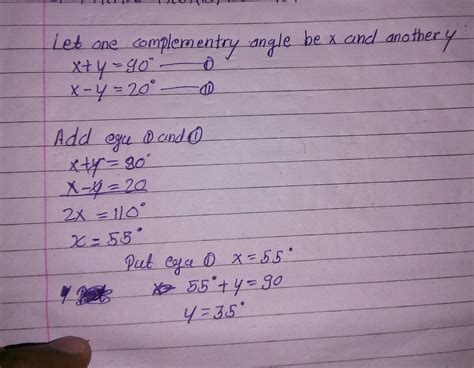 Let one complementry angle be x and another y
x+y=90° — ①
x-y=20° — ⑪
Add equ ① and ⑪
x+y=90°
x-y=20
2x=110°
x=55°
Put equ ① x=55°
55°+y=90
y=35°